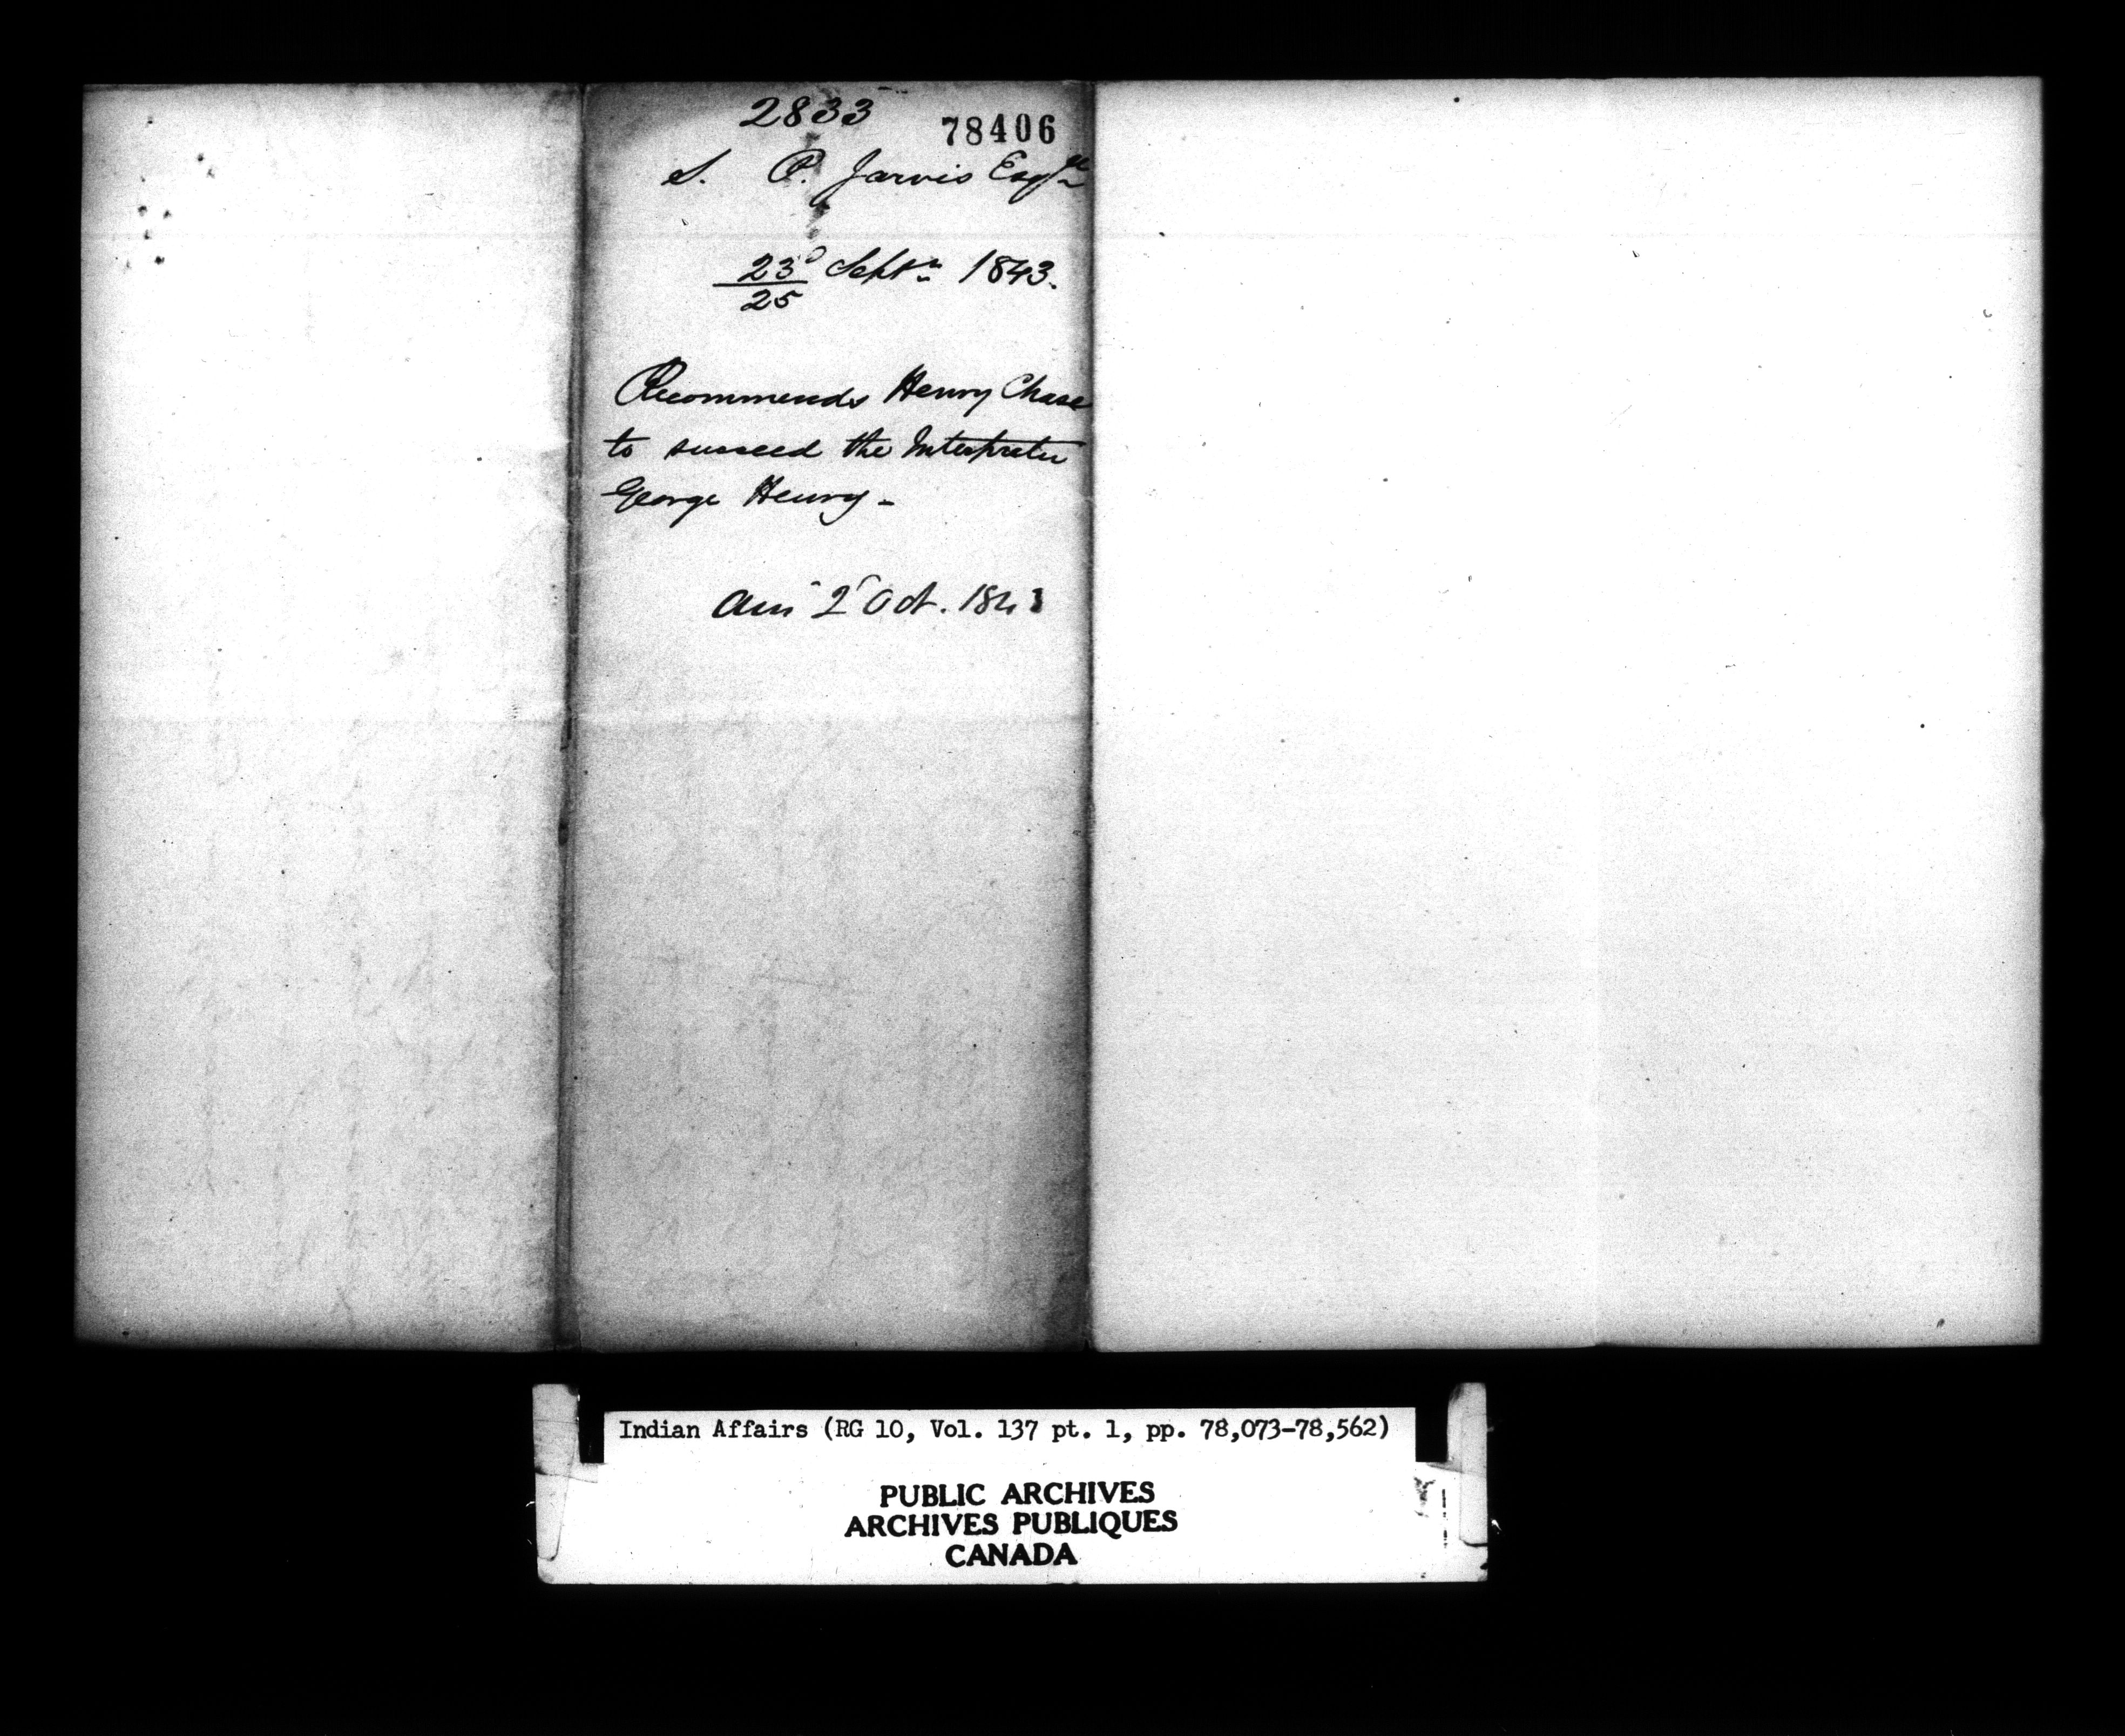 2833
78406
S. P. Jarvis Esqre
23d Septr 1843.
25
Recommends Henry Chase
to succeed the Interpreter
George Henry -
2 Oct. 1843
Indian Affairs (RG 10, Vol. 137 pt. 1, pp. 78,073-78,562)
PUBLIC ARCHIVES
ARCHIVES PUBLIQUES
CANADA